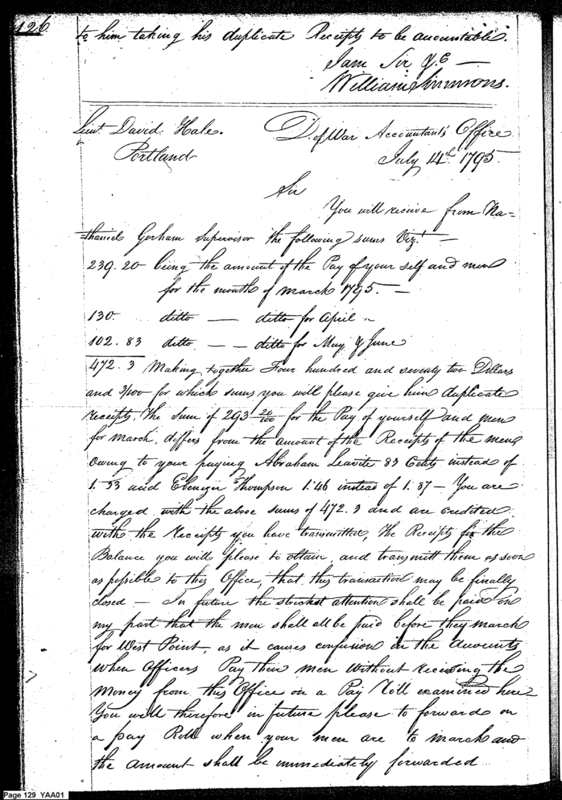 126.
to him taking his duplicate Receipts to be accountable.
I am Sir &c —
William Simmons.
Lieut. David Hale. D. of War Accountant's Office
Portland July 14th 1795
Sir
You will receive from Na-
=thaniel Gorham Supervisor the following sums Vizt —
239.20 being the amount of the Pay of your self and men
for the month of March 1795. —
130. ditto — ditto for April "
102.83 ditto — — ditto for May & June
472.3 Making together Four hundred and seventy two Dollars
and 3/100 for which sums you will please give him duplicate
receipts, the sum of 293 20/100 for the Pay of yourself and men
for March, differs from the amount of the Receipts of the men
owing to your paying Abraham Leavite 83 Cents instead of
1.33 and Ebenezer Thompson 1.46 instead of 1.37 — You are
charged with the above sums of 472.3 and are credited
with the Receipts you have transmitted, the Receipts for the
Balance you will please to obtain, and transmit them as soon
as possible to this Office, that this transaction may be finally
closed — In future the strictest attention shall be paid on
my part that the men shall all be paid before they march
for West Point, as it causes confusion in the accounts
when Officers Pay their men without receiving the
Money from this Office on a Pay Roll examined here
You will therefore in future please to forward on
a pay Roll when your men are to march and
the amount shall be immediately forwarded
Page 129 YAA01